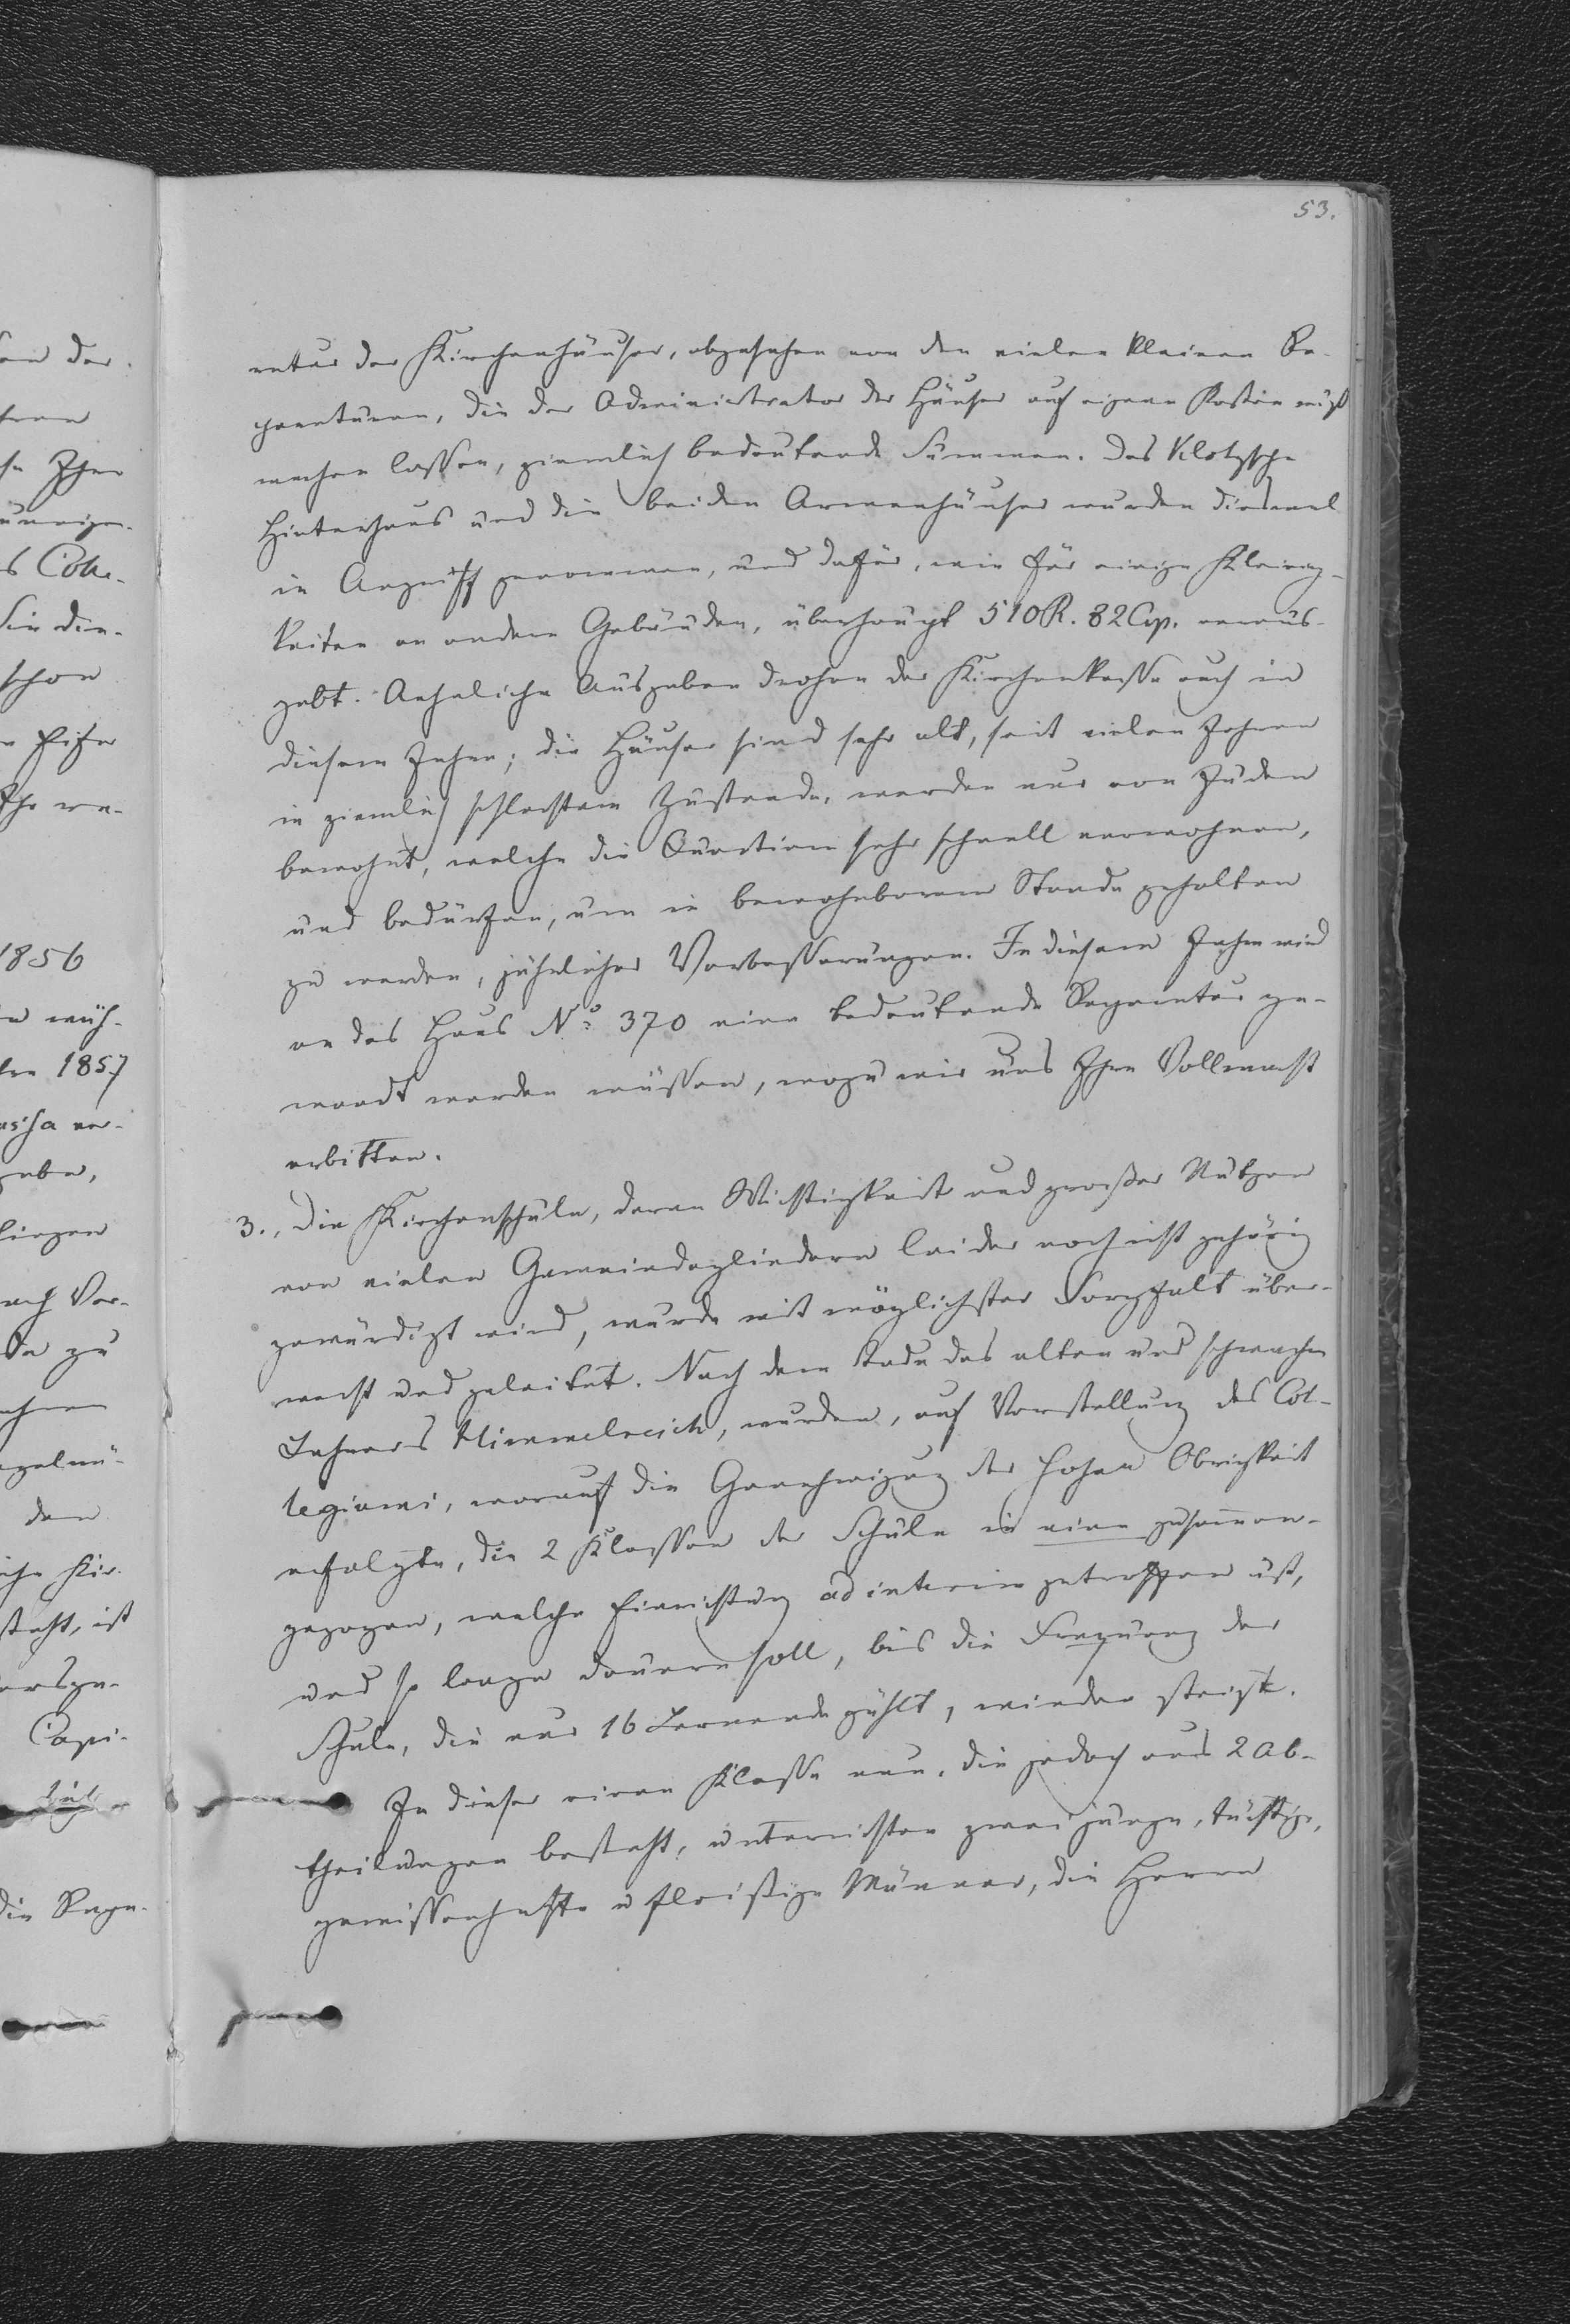 53.
ratur der Kirchenhäuser, abgesehen von den vielen kleinen Re-
paraturen, die der Administrator der Häuser auf eigene Kosten muß
machen lassen, ziemlich bedeutende Summen. Das Klotzsche
Hinterhaus und die beiden Armenhäuser wurden diesmal
in Angriff genommen, und dafür, wie für einige Kleinig-
keiten an andern Gebäuden, überhaupt 510 R. 82 Cop. veraus-
gabt. Aehnliche Ausgaben drohen der Kirchenkasse auch in
diesem Jahre; die Häuser sind sehr alt, seit vielen Jahren
in ziemlich schlechtem Zustande, werden nur von Juden
bewohnt, welche die Quartire sehr schnell verwohnen,
und bedürfen, um in bewohnbarem Stande gehalten
zu werden, jährlicher Verbesserungen. In diesem Jahre wird
an das Haus No 370 eine bedeutende Reparatur ge-
wandt werden müssen, wozu wir uns Ihre Vollmacht
erbitten.
3., Die Kirchenschule, deren Wichtigkeit und großer Nutzen
von vielen Gemeindegliedern leider noch nicht gehörig
gewürdigt wird, wurde mit möglichster Sorgfalt über-
wacht und geleitet. Nach dem Tode des alten und schwachen
Lehrers Himmelreich, wurden, auf Vorstellung des Col-
legiums, worauf die Genehmigung der hohen Obrigkeit
erfolgte, die 2 Klassen der Schule in eine zusammen-
gezogen, welche Einrichtung ad interim getroffen ist,
und so lange dauern soll, bis die Frequenz der
Schule, die nur 16 Lernende zählt, wieder steigt.
In dieser einen Klasse nun, die jedoch aus 2 Ab-
theilungen besteht, unterrichten zwei junge, tüchtige,
gewissenhafte u fleißige Männer, die Herrn